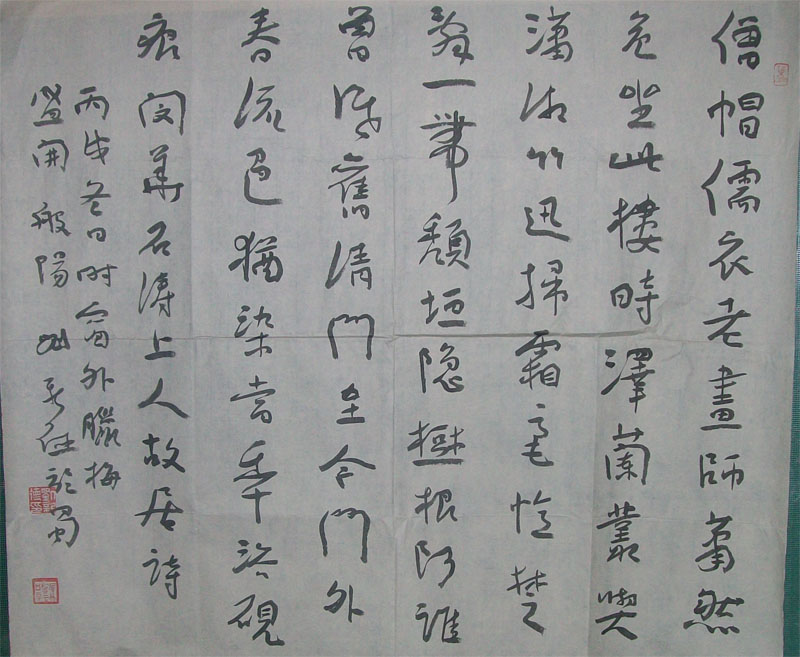 僧帽儒衣老畫師蕭然
危坐此樓時澤蘭叢喫
瀟湘竹迅掃霜毫憶楚
辭一帶頹垣隐樾根阿誰
曾識舊清門至今門外
春流色猶染當年洗硯
痕閔華石濤上人故居詩
丙戌冬日時窗外臘梅
盛開般陽於蜀